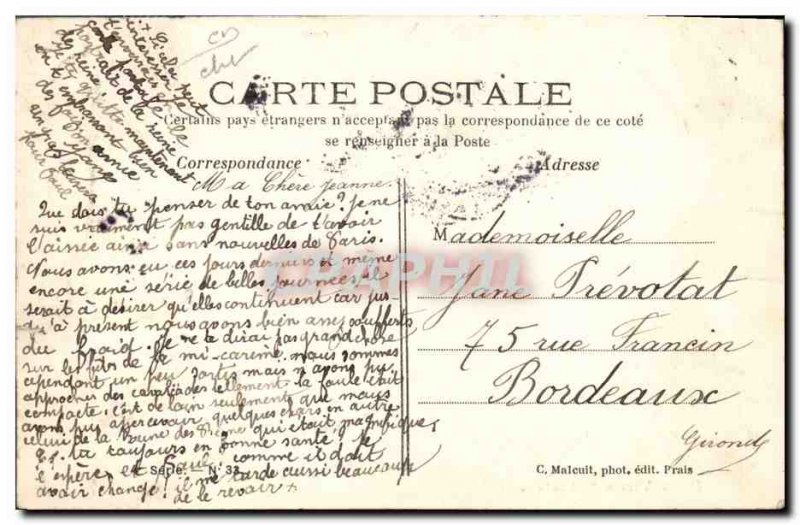 CARTE POSTALE
Certains pays étrangers n'acceptant pas la correspondance de ce coté
se renseigner à la Poste
Correspondance
Adresse
Ma Chère Jeanne.
Que dois tu penser de ton amie? Je ne
suis vraiment pas gentille de t'avoir
laissée ainsi sans nouvelles de Paris.
Nous avons eu ces jours derniers et même
encore une série de belles journées, il
serait à désirer qu'elles continuent car jus
qu'à présent nous avons bien assez soufferts
du froid. Je ne te dirai pas grand chose
sur les fêtes de la mi-carême. nous sommes
cependant un peu sortes mais n'avons pu
approcher des cavalcades tellement la foule était
compacte. C'est de loin seulement que nous
avons pu apercevoir quelques chars en autre
celui de la Reine des Reines qui était magnifique.
Es tu toujours en bonne santé? Je
l'espère et Paul comme il doit
avoir changé! il me tarde aussi beaucoup
de le revoir.
Mademoiselle
Jane Prévotat
75 rue Francin
Bordeaux
Gironde
Série N° 33
C. Malcuit, phot. édit. Prais
portrait de la reine
des reines
Je te quitte maintenant
en t'embrassant bien
pour Paul
PAPHIL